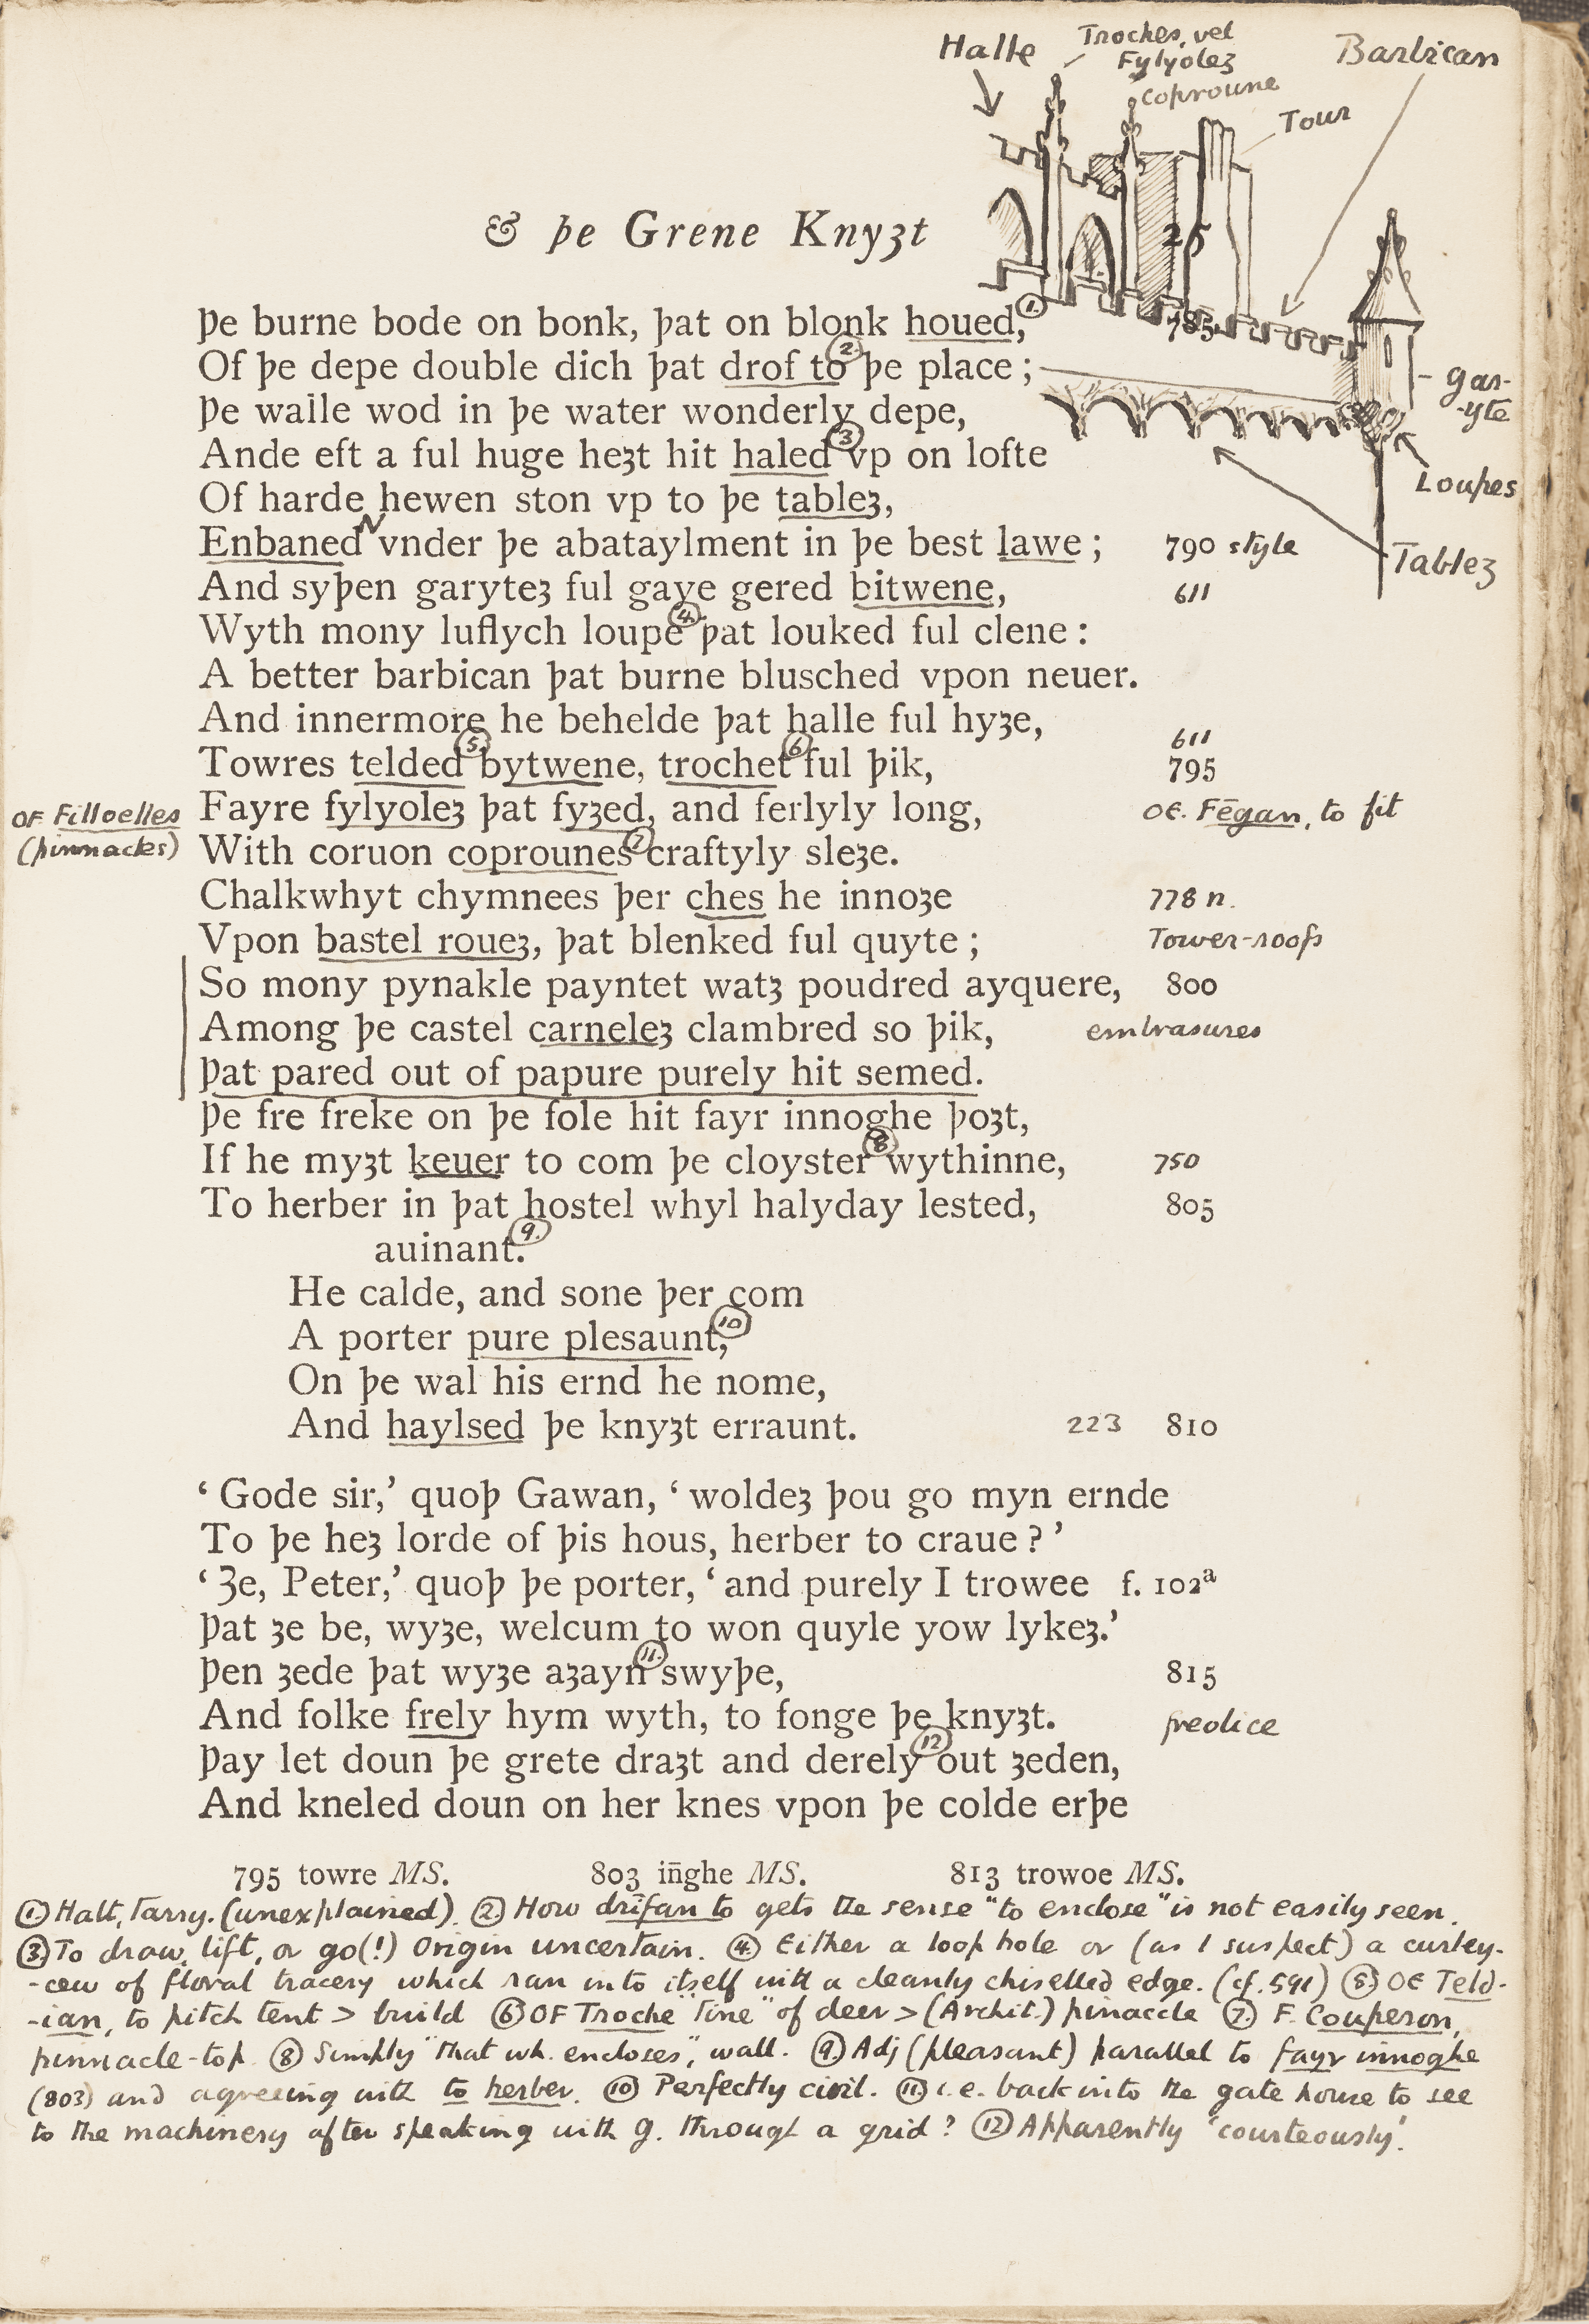 Halle
Troches, vel
Fylyoleȝ
Coproune
Barbican
Tour
& þe Grene Knyȝt
25
Þe burne bode on bonk, þat on blonk houed, ①
785
Of þe depe double dich þat drof to ② þe place ;
Þe walle wod in þe water wonderly depe,
gar-
-yte
Ande eft a ful huge heȝt hit haled ③ vp on lofte
Loupes
Of harde hewen ston vp to þe tableȝ,
Enbaned N vnder þe abataylment in þe best lawe ; 790 style
Tablez
And syþen garyteȝ ful gaye gered bitwene, 611
Wyth mony luflych loupe ④ þat louked ful clene :
A better barbican þat burne blusched vpon neuer.
And innermore he behelde þat halle ful hyȝe,
611
Towres telded ⑤ bytwene, trochet ⑥ ful þik, 795
OF Filloelles Fayre fylyoleȝ þat fyȝed, and ferlyly long, OE. Fēgan, to fit
(pinnacles) With coruon coprounes ⑦ craftyly sleȝe.
Chalkwhyt chymnees þer ches he innoȝe 778 n.
Vpon bastel roueȝ, þat blenked ful quyte ; Tower-roofs
So mony pynakle payntet watȝ poudred ayquere, 800
Among þe castel carneleȝ clambred so þik, embrasures
Þat pared out of papure purely hit semed.
Þe fre freke on þe fole hit fayr innoghe þoȝt,
If he myȝt keuer to com þe cloyster ⑧ wythinne, 750
To herber in þat hostel whyl halyday lested, 805
auinant. ⑨
He calde, and sone þer com
A porter pure plesaunt, ⑩
On þe wal his ernd he nome,
And haylsed þe knyȝt erraunt. 223 810
‘ Gode sir,’ quoþ Gawan, ‘ woldeȝ þou go myn ernde
To þe heȝ lorde of þis hous, herber to craue ? ’
‘ Ȝe, Peter,’ quoþ þe porter, ‘ and purely I trowee f. 102ª
Þat ȝe be, wyȝe, welcum to won quyle yow lykeȝ.’
Þen ȝede þat wyȝe aȝayn ⑪ swyþe, 815
And folke frely hym wyth, to fonge þe knyȝt. freolice
Þay let doun þe grete draȝt and derely ⑫ out ȝeden,
And kneled doun on her knes vpon þe colde erþe
795 towre MS. 803 in̄ghe MS. 813 trowoe MS.
① Halt, Tarry. (unexplained). ② How drīfan to gets the sense "to enclose" is not easily seen.
③ To draw, lift, or go(!) Origin uncertain. ④ Either a loop hole or (as I suspect) a curley-
-cew of floral tracery which ran into itself with a cleanly chiselled edge. (cf. 591) ⑤ OE Teld-
-ian, to pitch tent > build ⑥ OF Troche "Tine" of deer > (Archit.) pinaccle ⑦ F. Couperon,
pinnacle-top. ⑧ Simply "that wh. encloses", wall. ⑨ Adj (pleasant) parallel to fayr innoghe
(803) and agreeing with to herber. ⑩ Perfectly civil. ⑪ i.e. back into the gate house to see
to the machinery after speaking with G. through a grid? ⑫ Apparently 'courteously'.